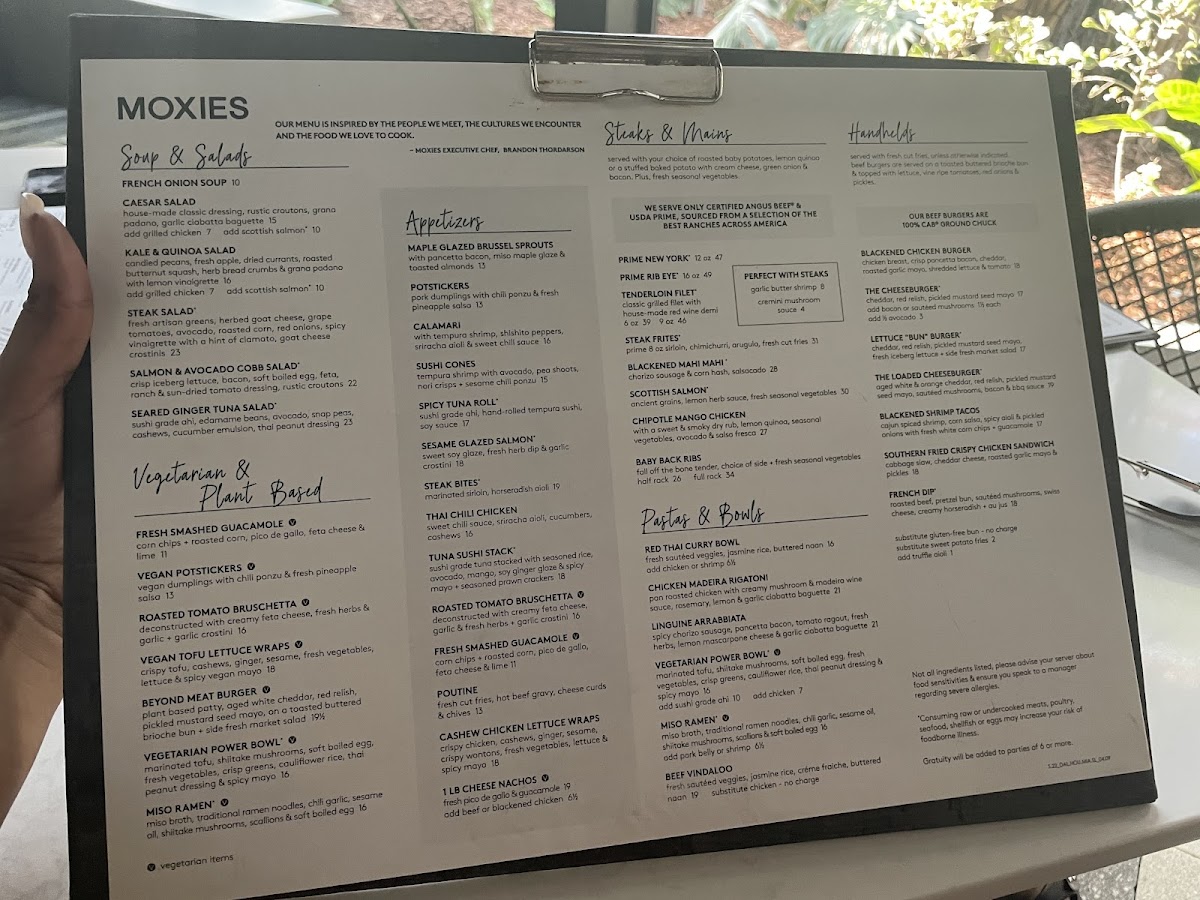 MOXIES
OUR MENU IS INSPIRED BY THE PEOPLE WE MEET, THE CULTURES WE ENCOUNTER
AND THE FOOD WE LOVE TO COOK.
– MOXIES EXECUTIVE CHEF, BRANDON THORDARSON
Soup & Salads
FRENCH ONION SOUP 10
CAESAR SALAD
house-made classic dressing, rustic croutons, grana
padano, garlic ciabatta baguette 15
add grilled chicken 7 add scottish salmon* 10
KALE & QUINOA SALAD
candied pecans, fresh apple, dried currants, roasted
butternut squash, herb bread crumbs & grana padano
with lemon vinaigrette 16
add grilled chicken 7 add scottish salmon* 10
STEAK SALAD*
fresh artisan greens, herbed goat cheese, grape
tomatoes, avocado, roasted corn, red onions, spicy
vinaigrette with a hint of clamato, goat cheese
crostinis 23
SALMON & AVOCADO COBB SALAD*
crisp iceberg lettuce, bacon, soft boiled egg, feta,
ranch & sun-dried tomato dressing, rustic croutons 22
SEARED GINGER TUNA SALAD*
sushi grade ahi, edamame beans, avocado, snap peas,
cashews, cucumber emulsion, thai peanut dressing 23
Vegetarian &
Plant Based
FRESH SMASHED GUACAMOLE V
corn chips + roasted corn, pico de gallo, feta cheese &
lime 11
VEGAN POTSTICKERS V
vegan dumplings with chili ponzu & fresh pineapple
salsa 13
ROASTED TOMATO BRUSCHETTA V
deconstructed with creamy feta cheese, fresh herbs &
garlic + garlic crostini 16
VEGAN TOFU LETTUCE WRAPS V
crispy tofu, cashews, ginger, sesame, fresh vegetables,
lettuce & spicy vegan mayo 18
BEYOND MEAT BURGER V
plant based patty, aged white cheddar, red relish,
pickled mustard seed mayo, on a toasted buttered
brioche bun + side fresh market salad 19½
VEGETARIAN POWER BOWL* V
marinated tofu, shiitake mushrooms, soft boiled egg,
fresh vegetables, crisp greens, cauliflower rice, thai
peanut dressing & spicy mayo 16
MISO RAMEN* V
miso broth, traditional ramen noodles, chili garlic, sesame
oil, shiitake mushrooms, scallions & soft boiled egg 16
V vegetarian items
Appetizers
MAPLE GLAZED BRUSSEL SPROUTS
with pancetta bacon, miso maple glaze &
toasted almonds 13
POTSTICKERS
pork dumplings with chili ponzu & fresh
pineapple salsa 13
CALAMARI
with tempura shrimp, shishito peppers,
sriracha aioli & sweet chili sauce 16
SUSHI CONES
tempura shrimp with avocado, pea shoots,
nori crisps + sesame chili ponzu 15
SPICY TUNA ROLL*
sushi grade ahi, hand-rolled tempura sushi,
soy sauce 17
SESAME GLAZED SALMON*
sweet soy glaze, fresh herb dip & garlic
crostini 18
STEAK BITES*
marinated sirloin, horseradish aioli 19
THAI CHILI CHICKEN
sweet chili sauce, sriracha aioli, cucumbers,
cashews 16
TUNA SUSHI STACK*
sushi grade tuna stacked with seasoned rice,
avocado, mango, soy ginger glaze & spicy
mayo + seasoned prawn crackers 18
ROASTED TOMATO BRUSCHETTA V
deconstructed with creamy feta cheese,
garlic & fresh herbs + garlic crostini 16
FRESH SMASHED GUACAMOLE V
corn chips + roasted corn, pico de gallo,
feta cheese & lime 11
POUTINE
fresh cut fries, hot beef gravy, cheese curds
& chives 13
CASHEW CHICKEN LETTUCE WRAPS
crispy chicken, cashews, ginger, sesame,
crispy wontons, fresh vegetables, lettuce &
spicy mayo 18
1 LB CHEESE NACHOS V
fresh pico de gallo & guacamole 19
add beef or blackened chicken 6½
Steaks & Mains
served with your choice of roasted baby potatoes, lemon quinoa
or a stuffed baked potato with cream cheese, green onion &
bacon. Plus, fresh seasonal vegetables.
WE SERVE ONLY CERTIFIED ANGUS BEEF® &
USDA PRIME, SOURCED FROM A SELECTION OF THE
BEST RANCHES ACROSS AMERICA
PRIME NEW YORK* 12 oz 47
PRIME RIB EYE* 16 oz 49
TENDERLOIN FILET*
classic grilled filet with
house-made red wine demi
6 oz 39 9 oz 46
PERFECT WITH STEAKS
garlic butter shrimp 8
cremini mushroom
sauce 4
STEAK FRITES*
prime 8 oz sirloin, chimichurri, arugula, fresh cut fries 31
BLACKENED MAHI MAHI*
chorizo sausage & corn hash, salsacado 28
SCOTTISH SALMON*
ancient grains, lemon herb sauce, fresh seasonal vegetables 30
CHIPOTLE MANGO CHICKEN
with a sweet & smoky dry rub, lemon quinoa, seasonal
vegetables, avocado & salsa fresca 27
BABY BACK RIBS
fall off the bone tender, choice of side + fresh seasonal vegetables
half rack 26 full rack 34
Pastas & Bowls
RED THAI CURRY BOWL
fresh sautéed veggies, jasmine rice, buttered naan 16
add chicken or shrimp 6½
CHICKEN MADEIRA RIGATONI
pan roasted chicken with creamy mushroom & madeira wine
sauce, rosemary, lemon & garlic ciabatta baguette 21
LINGUINE ARRABBIATA
spicy chorizo sausage, pancetta bacon, tomato ragout, fresh
herbs, lemon mascarpone cheese & garlic ciabatta baguette 21
VEGETARIAN POWER BOWL* V
marinated tofu, shiitake mushrooms, soft boiled egg, fresh
vegetables, crisp greens, cauliflower rice, thai peanut dressing &
spicy mayo 16
add sushi grade ahi 10 add chicken 7
MISO RAMEN* V
miso broth, traditional ramen noodles, chili garlic, sesame oil,
shiitake mushrooms, scallions & soft boiled egg 16
add pork belly or shrimp 6½
BEEF VINDALOO
fresh sautéed veggies, jasmine rice, crème fraiche, buttered
naan 19 substitute chicken - no charge
Handhelds
served with fresh cut fries, unless otherwise indicated.
beef burgers are served on a toasted buttered brioche bun
& topped with lettuce, vine ripe tomatoes, red onions &
pickles.
OUR BEEF BURGERS ARE
100% CAB® GROUND CHUCK
BLACKENED CHICKEN BURGER
chicken breast, crisp pancetta bacon, cheddar,
roasted garlic mayo, shredded lettuce & tomato 18
THE CHEESEBURGER*
cheddar, red relish, pickled mustard seed mayo 17
add bacon or sautéed mushrooms 1½ each
add ½ avocado 3
LETTUCE "BUN" BURGER*
cheddar, red relish, pickled mustard seed mayo,
fresh iceberg lettuce + side fresh market salad 17
THE LOADED CHEESEBURGER*
aged white & orange cheddar, red relish, pickled mustard
seed mayo, sautéed mushrooms, bacon & bbq sauce 19
BLACKENED SHRIMP TACOS
cajun spiced shrimp, corn salsa, spicy aioli & pickled
onions with fresh white corn chips + guacamole 17
SOUTHERN FRIED CRISPY CHICKEN SANDWICH
cabbage slaw, cheddar cheese, roasted garlic mayo &
pickles 18
FRENCH DIP*
roasted beef, pretzel bun, sautéed mushrooms, swiss
cheese, creamy horseradish + au jus 18
substitute gluten-free bun - no charge
substitute sweet potato fries 2
add truffle aioli 1
Not all ingredients listed, please advise your server about
food sensitivities & ensure you speak to a manager
regarding severe allergies.
*Consuming raw or undercooked meats, poultry,
seafood, shellfish or eggs may increase your risk of
foodborne illness.
Gratuity will be added to parties of 6 or more.